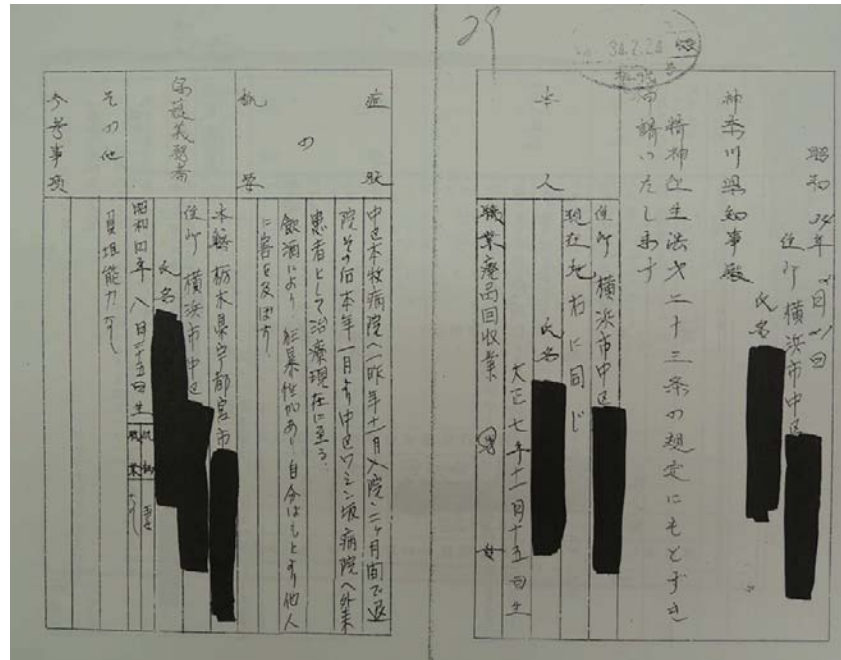 29
34.2.24
昭和34年2月21日
住所 横浜市中区
氏名
神奈川県知事殿
精神衛生法第二十三条の規定にもとずき
申請いたします
本人
住所 横浜市中区
現在地 右に同じ
氏名
大正七年十一月十五日生
職業 廃品回収業 男 女
症状の概要
中区本牧病院へ一昨年十一月入院二ヶ月間で退
院その后本年一月より中区ワシン坂病院へ外来
患者として治療現在に至る.
飲酒により狂暴性があり自分はもとより他人
に害を及ぼす.
保護義務者
本籍 栃木県宇都宮市
住所 横浜市中区
氏名
昭和四年八月二十五日生 続柄 妻
職業 なし
その他
参考事項
負担能力なし